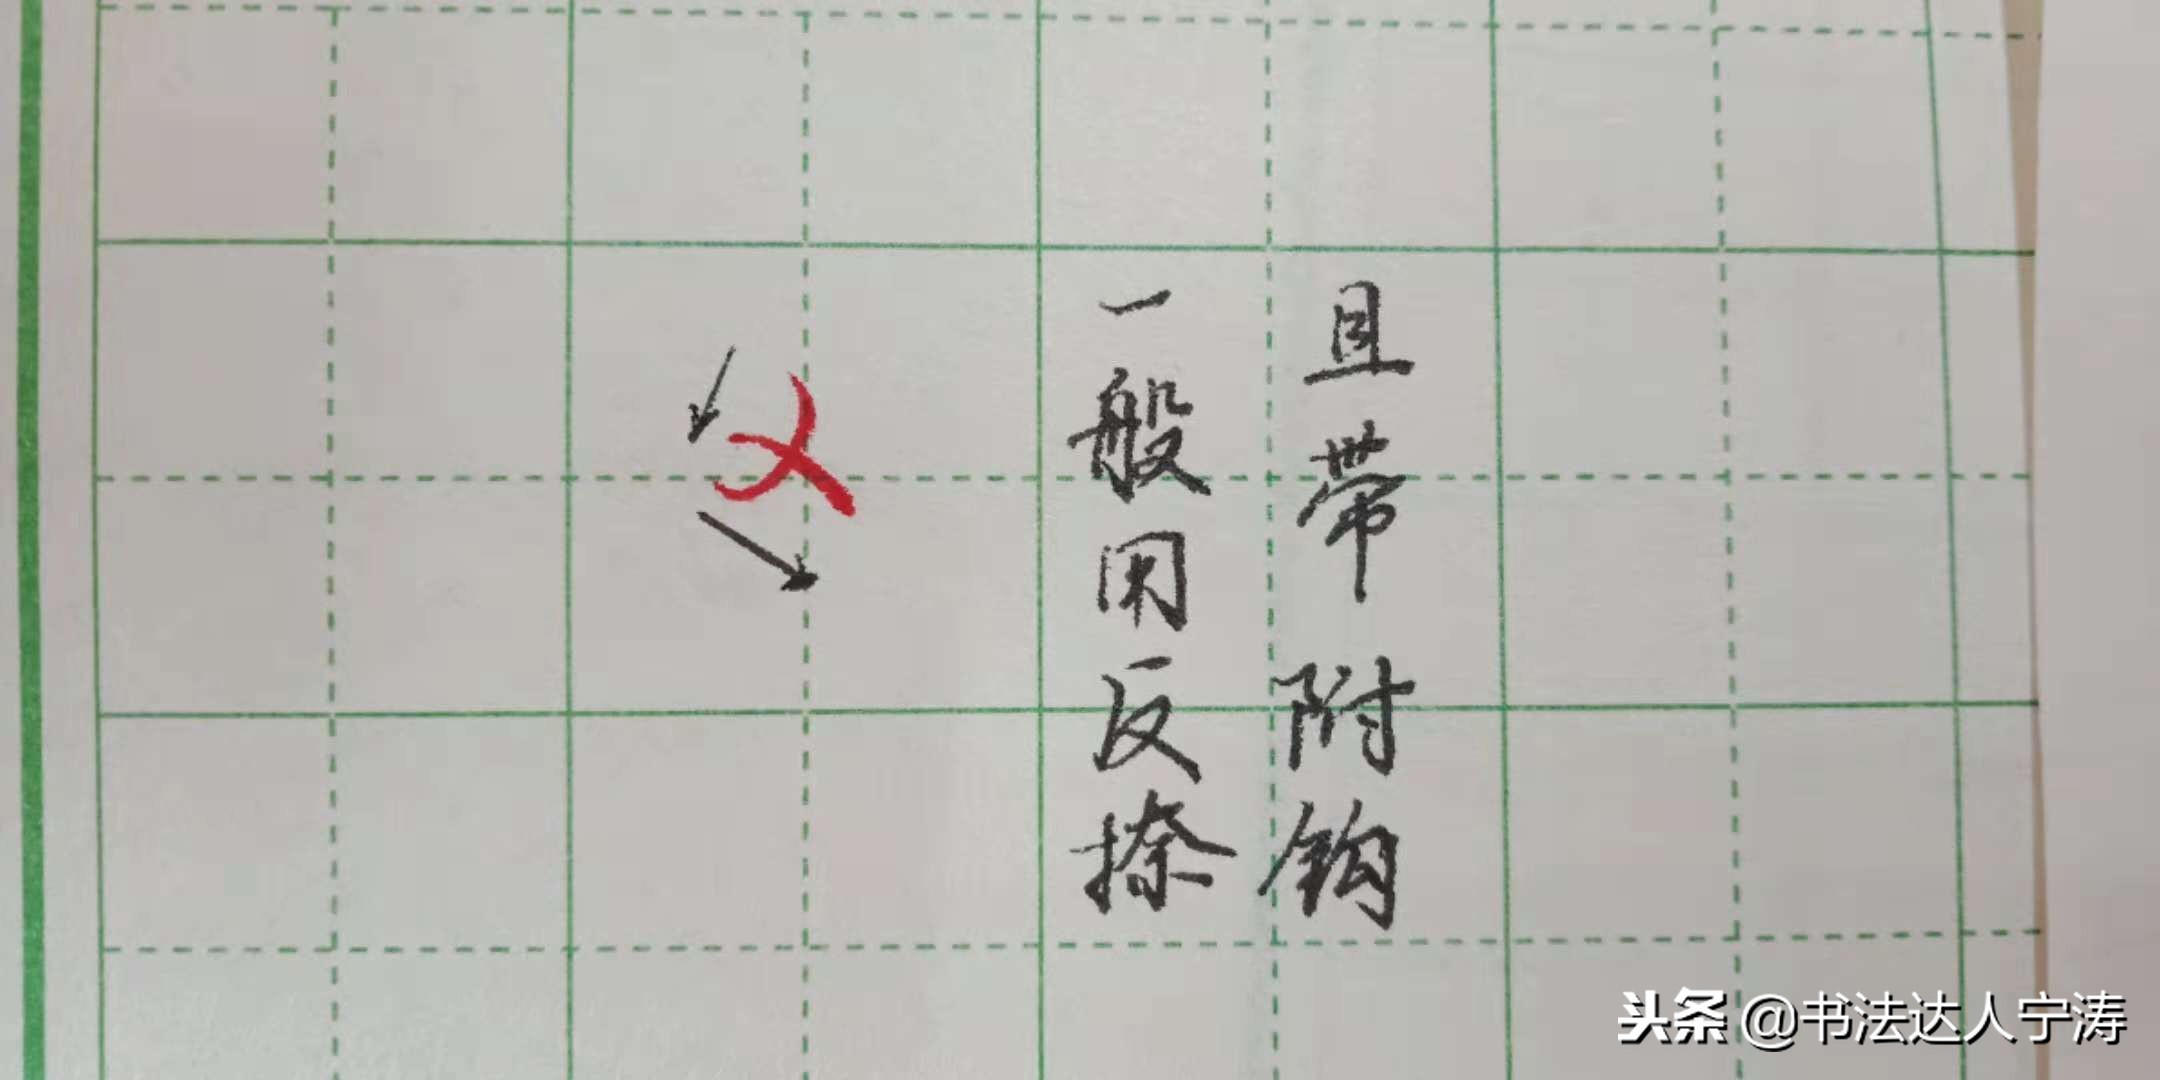 一般用反捺
且带附钩
头条 @书法达人宁涛